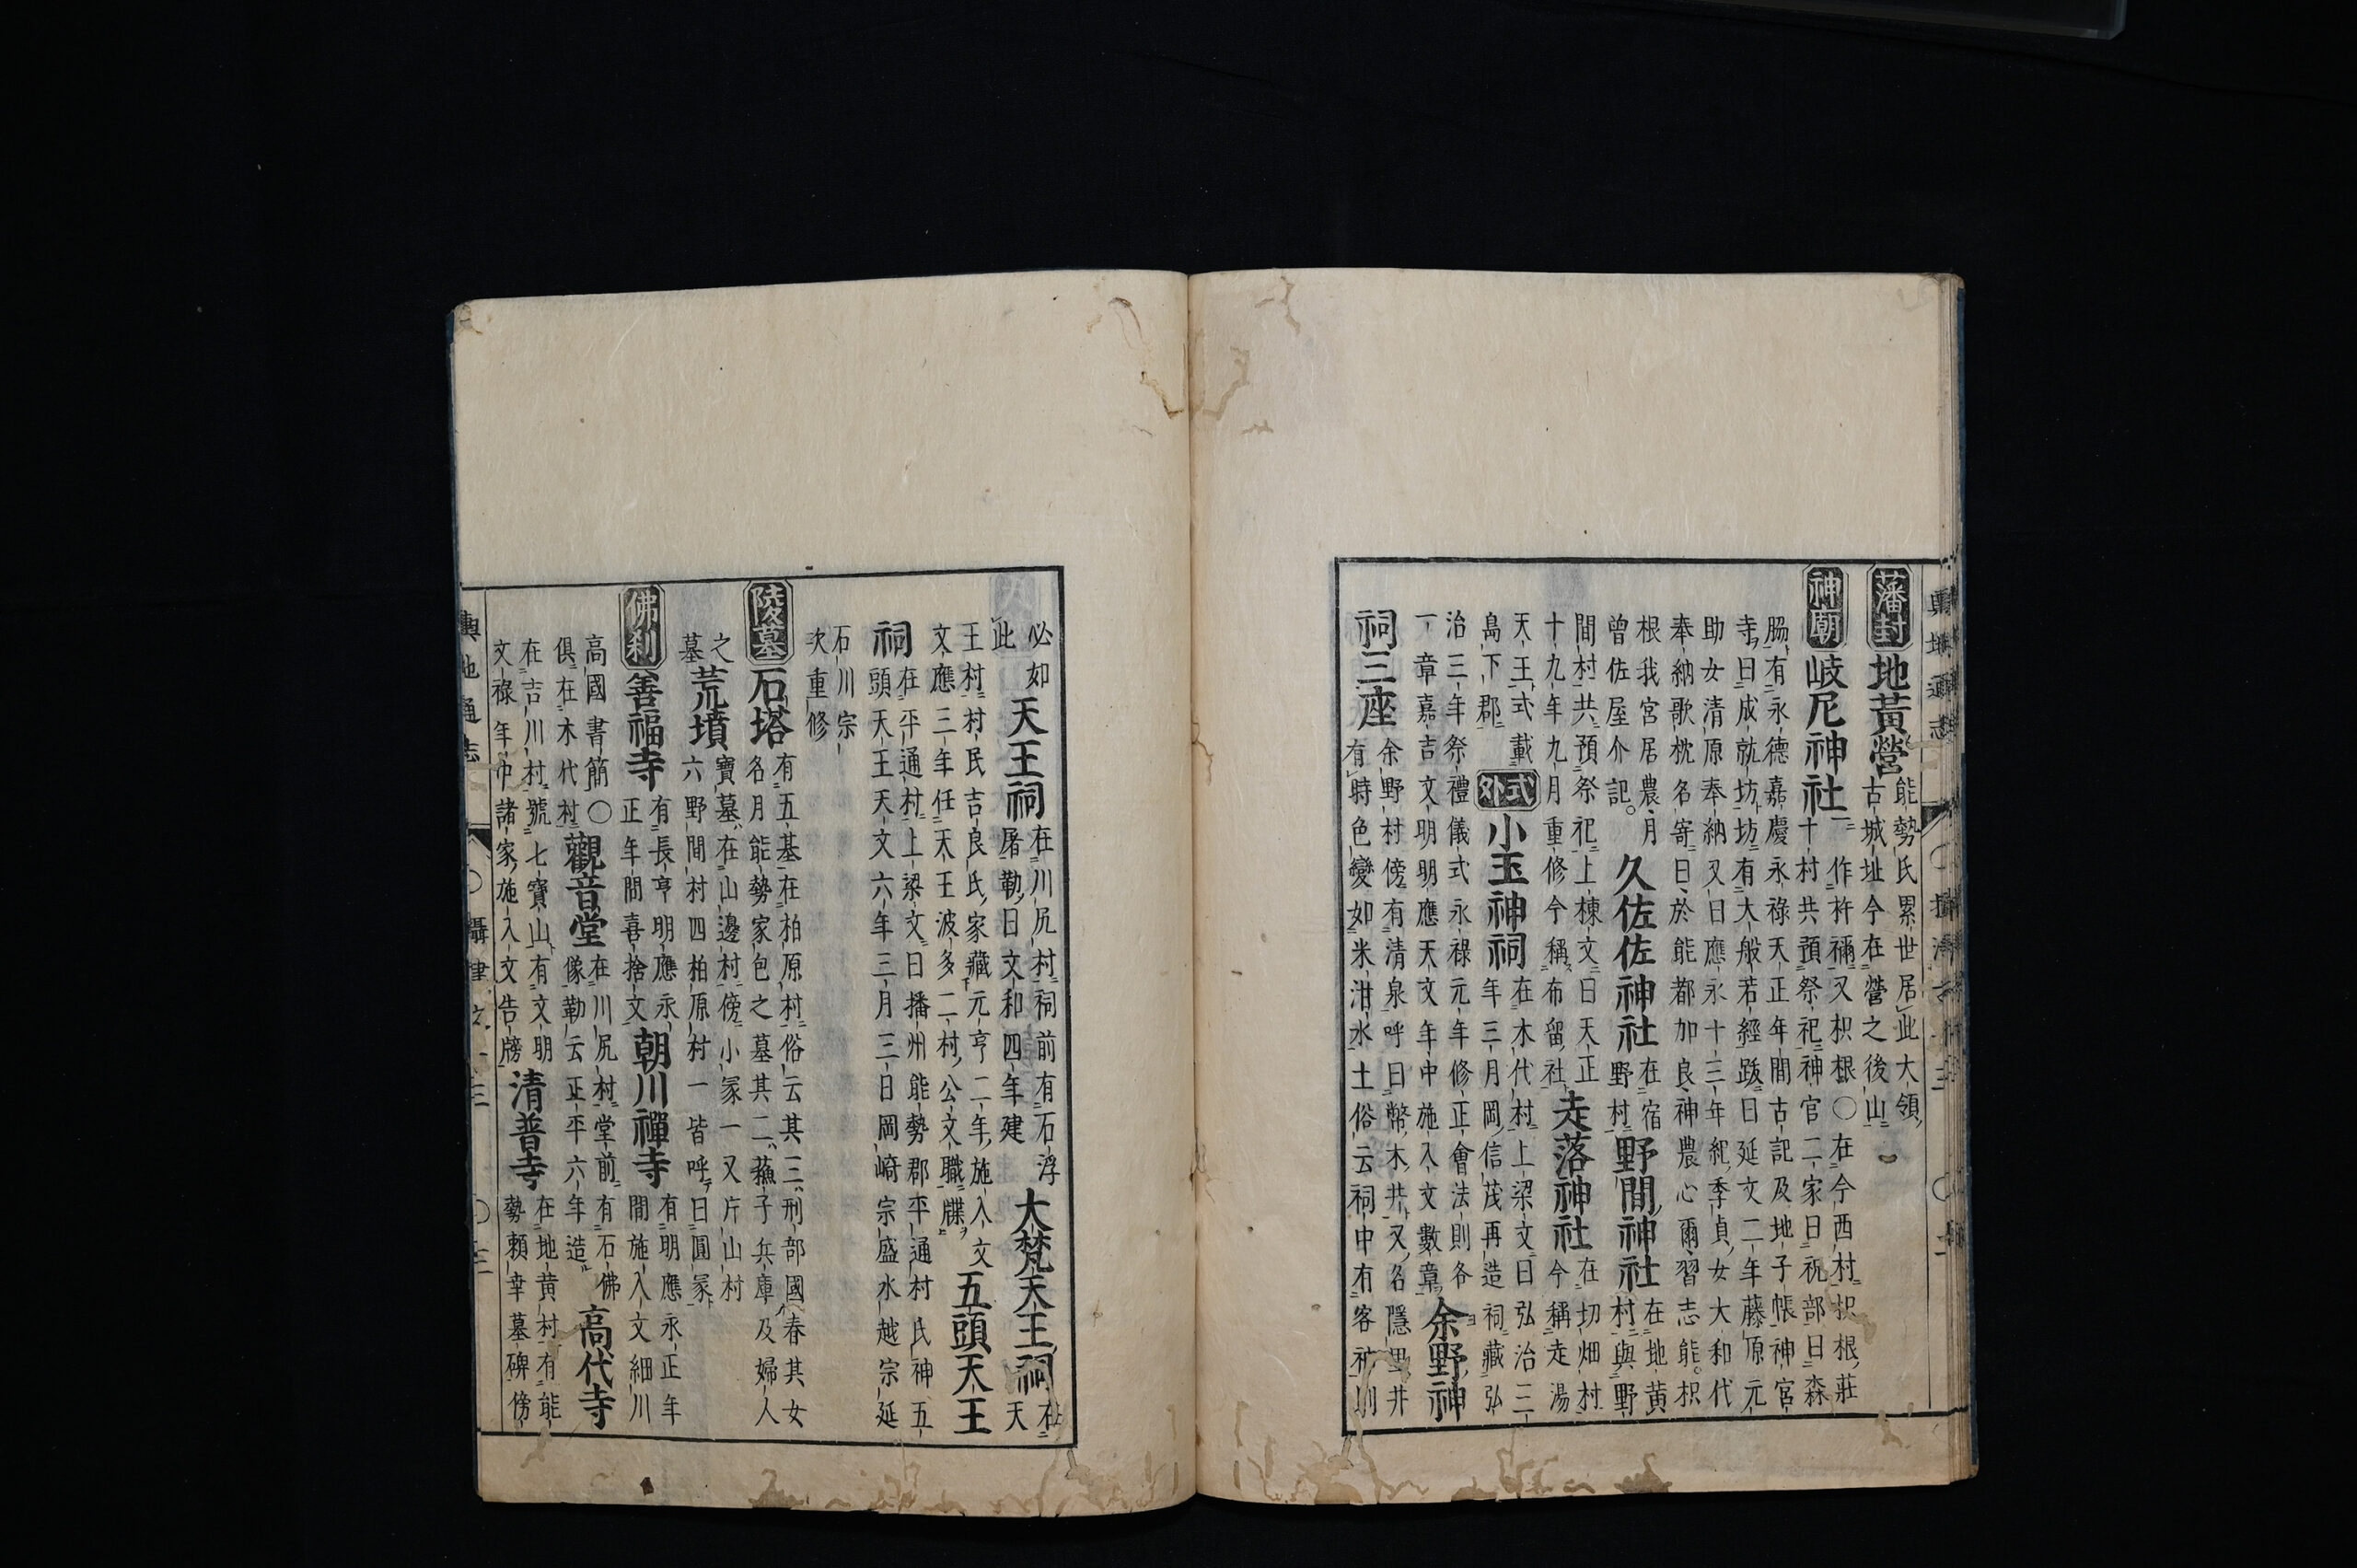 藩封 地黃營 能勢氏累世居此大領
古城址今在營之後山
神廟 岐尼神社 作杵禰又枳根〇在今西村枳根莊
十村共預祭祀神官二家曰祝部曰森
腸有永德嘉慶永祿天正年間古記及地子帳神宮
寺曰成就坊坊有大般若經跋曰延文二年藤原元
助女清原奉納又曰應永十三年紀季貞女大和代
奉納歌枕名寄曰於能都加良神農心爾習志能枳
根我宮居農月
曾佐屋介記
久佐佐神社 在宿
野村
野間神社 在地黃
村與野
間村共預祭祀上棟文曰天正
十九年九月重修今稱布留社
走落神社 在切畑村
今稱走湯
天王式載
島下郡
式外 小玉神祠 在木代村上梁文曰弘治三
年三月岡信茂再造祠藏弘
治三年祭禮儀式永祿元年修正會法則各
一章嘉吉文明明應天文年中施入文數章
余野神
祠三座 余野村傍有清泉呼曰幣木井又名隱里井
有時色變如米泔水土俗云祠中有客神則
必如
此
天王祠 在川尻村祠前有石浮
屠勒曰文和四年建
大梵天王祠 在
天
王村村民吉良氏家藏元亨二年施入文
文應三年任天王波多二村公文職牒
五頭天王
祠 在平通村上梁文曰播州能勢郡平通村氏神五
頭天王天文六年三月三日岡崎宗盛水越宗延
石川宗
次重修
陵墓 石塔 有五基在柏原村俗云其三刑部國春其女
各月能勢家包之墓其二蘓子兵庫及婦人
之
墓
荒墳 寶墓在山邊村傍小冢一又片山村
六野間村四柏原村一皆呼曰圓冢
佛刹 善福寺 有長亨明應永
正年間喜捨文
朝川禪寺 有明應永正年
間施入文細川
高國書簡〇
俱在木代村
觀音堂 在川尻村堂前有石佛
像勒云正平六年造
高代寺
在吉川村號七寶山有文明
文祿年中諸家施入文告牓
清普寺 在地黃村有能
勢頼幸墓碑傍